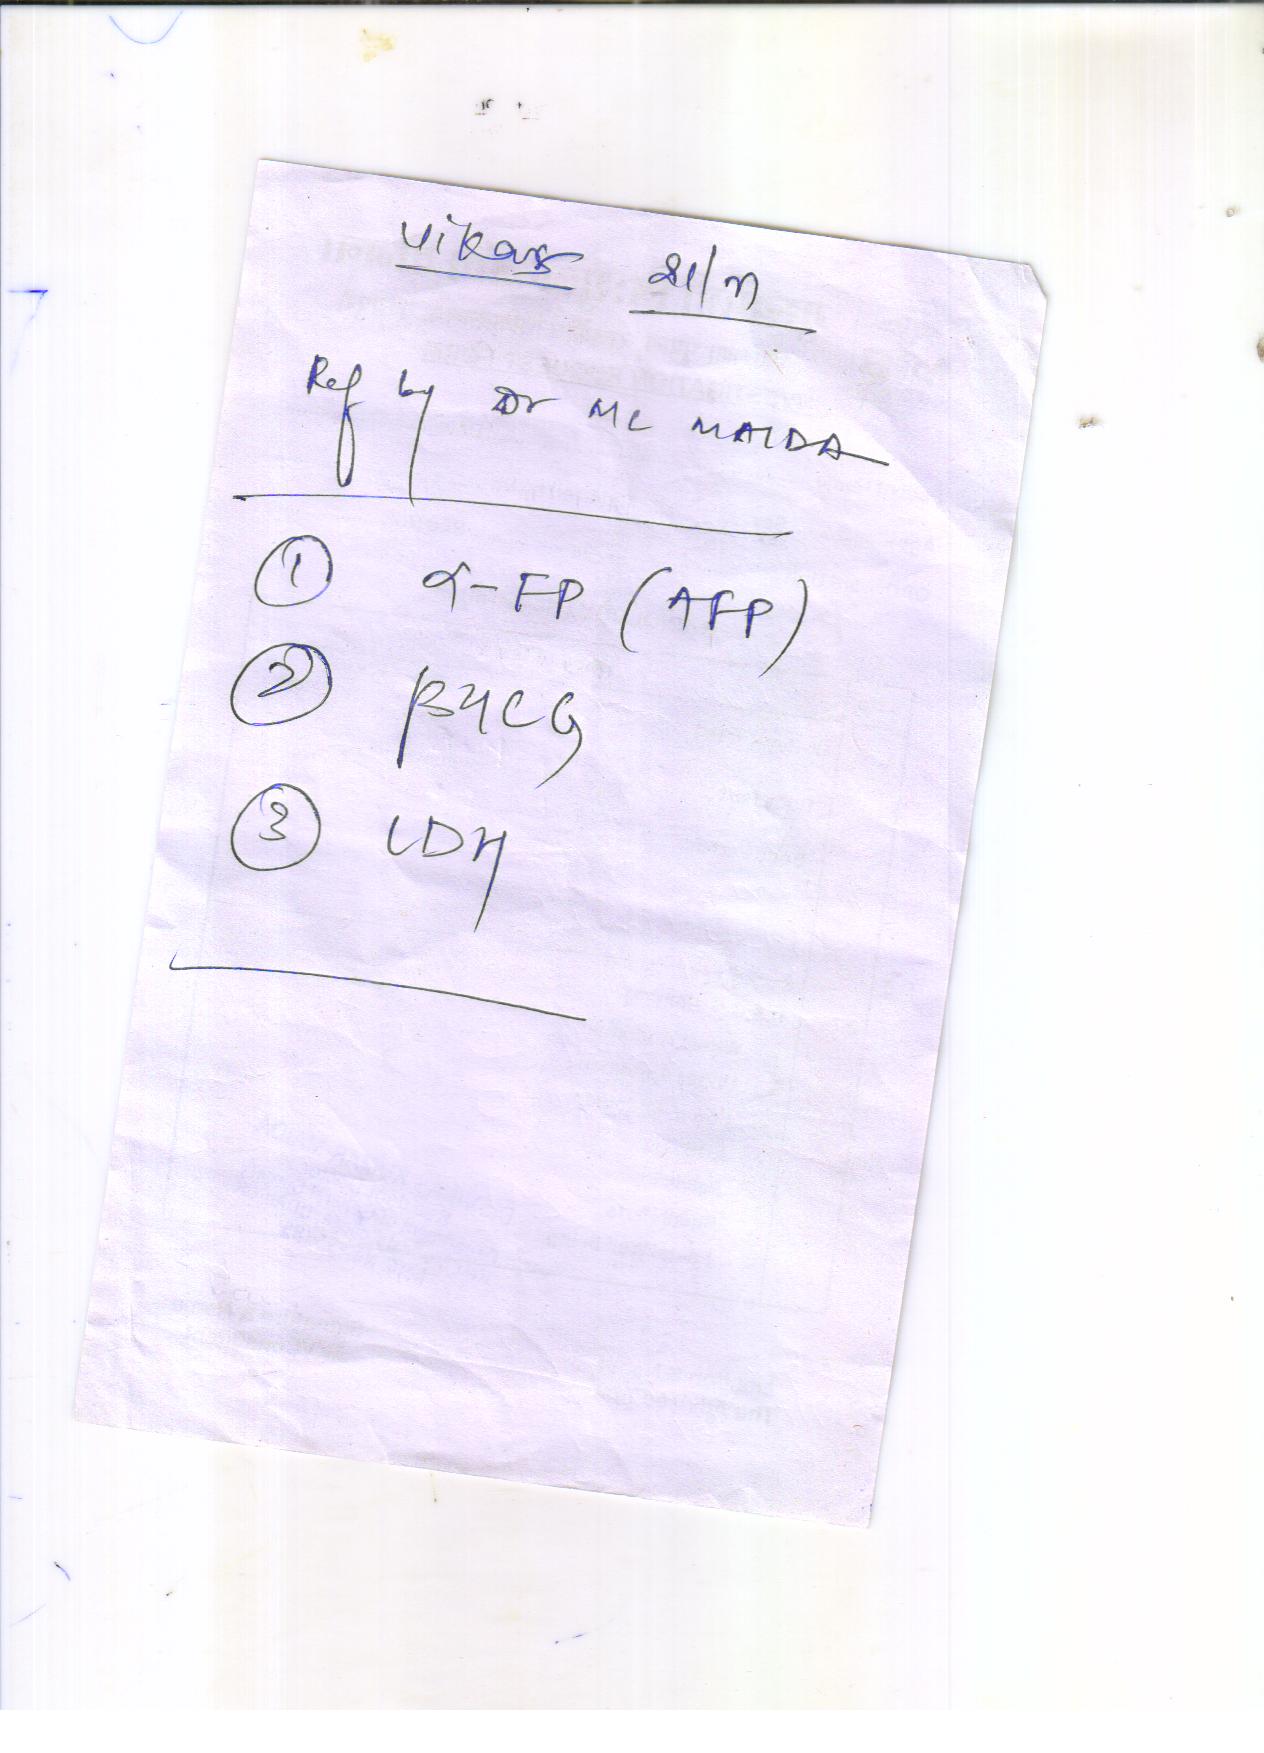 Vikas 21/M
Ref by Dr MC MAIDA
① α-FP (AFP)
② βHCG
③ LDH